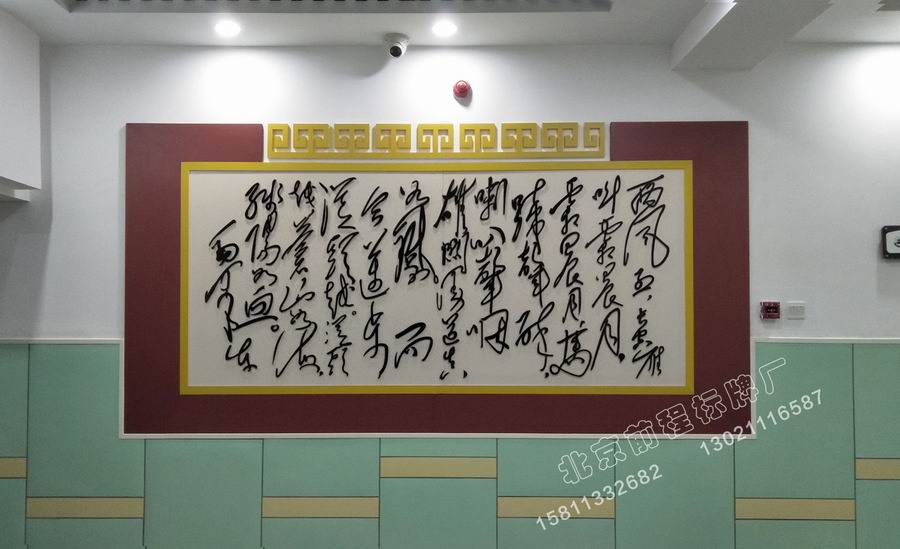 西风烈，长空雁
叫霜晨月。
霜晨月，马
蹄声碎，
喇叭声咽
雄关漫道真
如铁 而
今迈步
从头越。从头
越苍山如海，
残阳如血。
毛泽东
北京前程标牌厂
15811332682 13021116587